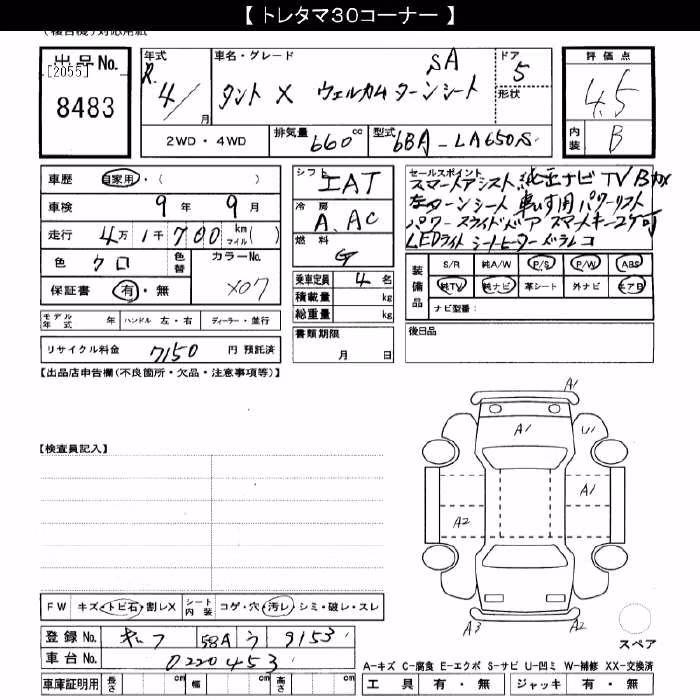 【 トレタマ30コーナー 】
出品No. [2055] 8483
年式 R 4 / 月
車名・グレード タント X ウェルカムターンシート SA
ドア 5
形状
評価点 4.5
内装 B
2WD・4WD 排気量 660 cc 型式 6BA-LA650S
車歴 自家用・( )
車検 9年 9月
走行 4万 1千 700 km マイル( )
色 クロ 色替 カラーNo. X07
保証書 有・無
モデル年式 年 ハンドル 左・右 ディーラー・並行
リサイクル料金 7150 円 預託済
シフト IAT
冷房 A.AC
燃料 G
乗車定員 4名
積載量 kg
総重量 kg
書類期限 月 日
セールスポイント
スマートアシスト 純正ナビ TV Bカメ
左ターンシート 車いす用 パワーリフト
パワースライドドア スマートキー2ケ可
LEDライト シートヒーター ドラレコ
装備品 S/R 純A/W P/S P/W ABS
純TV 純ナビ 革シート 外ナビ エアB
ナビ型番:
後日品
【出品店申告欄(不良箇所・欠品・注意事項等)】
【検査員記入】
A1
A1
U1
A1
A2
A3
A2
スペア
FW キズ・トビ石・割レX シート内装 コゲ・穴・汚レ・シミ・破レ・スレ
登録No. 58A う 9153
車台No. 0220453
車庫証明用 長さ cm 幅 cm 高さ cm
A-キズ C-腐食 E-エクボ S-サビ U-凹ミ W-補修 XX-交換済
工具 有・無 ジャッキ 有・無